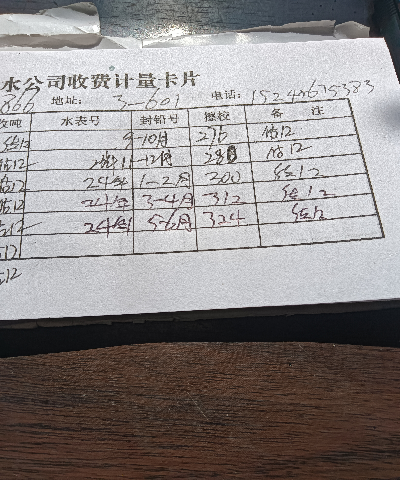 水公司收费计量卡片
866 地址: 3-601 电话: 15248675383
收吨 水表号 封铅号 德校 备 注
估12 9-10月 276 估12
估12 11-12月 288 估12
估12 24年 1-2月 300 估12
估12 24年 3-4月 312 估12
估12 24年 5-6月 324 估12
估12
估12